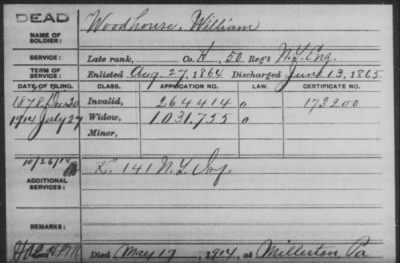 DEAD
Woodhouse, William
NAME OF SOLDIER:
SERVICE: Late rank, Co. I, 50 Reg't N.Y. Eng.
TERM OF SERVICE: Enlisted Aug. 27, 1864 Discharged June 13, 1865
DATE OF FILING. CLASS. APPLICATION NO. LAW. CERTIFICATE NO.
1878 Dec 30 Invalid, 264414 0 172200
1914 July 27 Widow, 1031,755 0
Minor,
10/26/14
ADDITIONAL SERVICES: K. 141 N.Y. Inf.
REMARKS:
Died May 17, 1914, at Millerton Pa